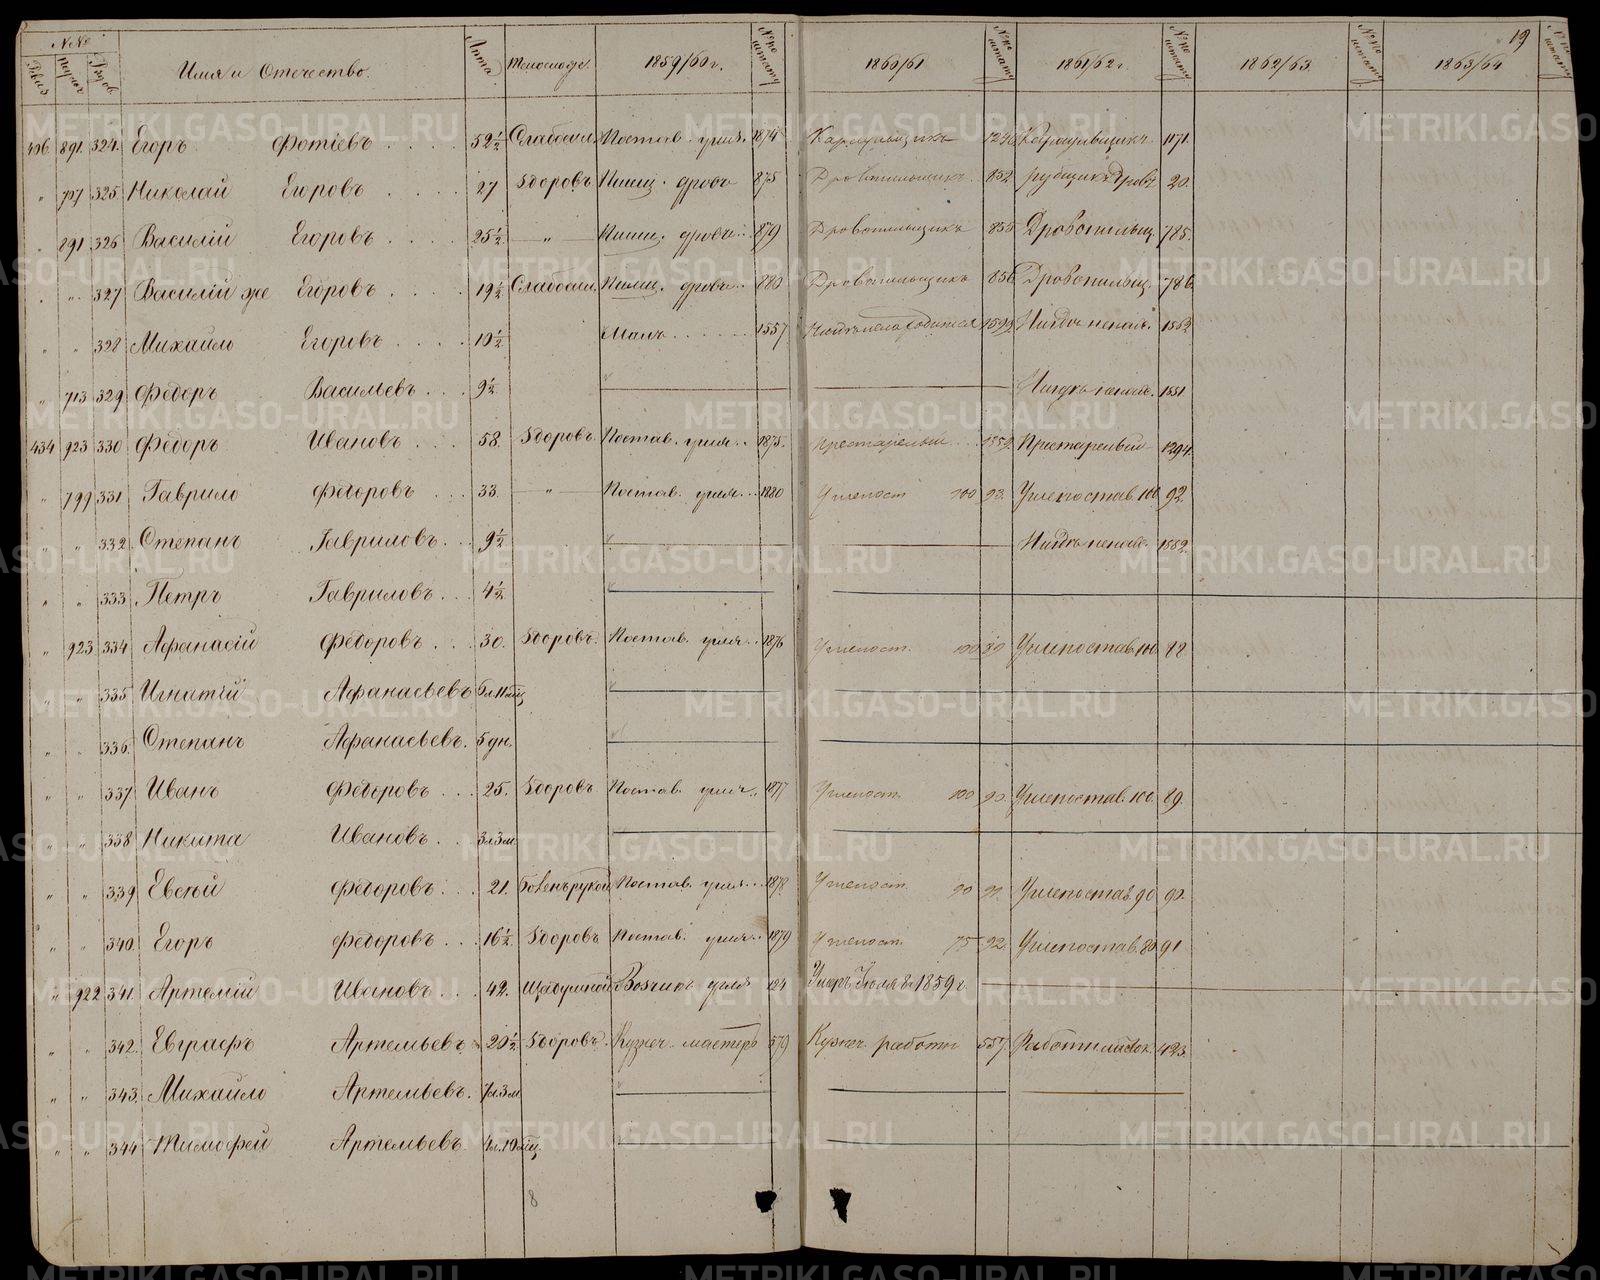 №№ 19
Имя и Отчество. Лѣта Телослож. 1859/60 г. №№ по штату 1860/61 №№ по штату 1861/62 г. №№ по штату 1862/63. №№ по штату 1863/64 №№ по штату
406. 891. 324. Егоръ Фотіевъ .... 52½ Слабосил. Постав. угля. 1874 Караульщикъ Караульщикъ 1171.
" 325. Николай Егоровъ .... 27 Здоровъ Пилищ. дровъ 875 Дровопильщикъ. 852 рубщикъ дровъ 20.
" 891 326 Василій Егоровъ .... 25½ — " — Пилищ. дровъ .. 879 Дровопильщикъ 855 Дровопильщ. 785.
" " 327 Василій же Егоровъ .... 19½ Слабосил. Пилищ. дровъ .. 880 Дровопильщикъ 856 Дровопильщ. 786.
" " 328 Михайло Егоровъ .... 10½ Малъ ..... 1557
" 713 329 Федоръ Васильевъ ... 9½ 1551
434 923 330 Федоръ Ивановъ ... 58. Здоровъ. Постав. угля .. 1875. Престарелый ... Престарелый 1294.
" 799 331 Гаврило Федоровъ ... 33. — " — Постав. угля ... 1880 Углепост 100 93. Углепостав. 100. 92.
" " 332. Степанъ Гавриловъ ... 9½ 1552.
" " 333. Петръ Гавриловъ ... 4½
" 923 334 Афанасій Федоровъ ... 30. Здоровъ. Постав. угля .. 1876 Углепост. 100 89 Углепостав. 100 88
" " 335 Игнатій Афанасьевъ 6л.11мѣц
" " 336. Степанъ Афанасьевъ. 5 дн.
" " 337 Иванъ Федоровъ ... 25. Здоровъ Постав. угля .. 1877 Углепост. 100 90. Углепостав. 100. 89.
" " 338 Никита Ивановъ .. 3л3м.
" " 339 Евсѣй Федоровъ ... 21. Боленъ рукой Постав. угля ... 1878. Углепост. 90 91. Углепостав. 90 90.
" " 340. Егоръ Федоровъ ... 16½. Здоровъ Постав. угля .. 1879 Углепост. 75 92. Углепостав. 80 91
" 922 341. Артемій Ивановъ ... 42. Щедушной Возчикъ угля 184 Умеръ Іюля 8. 1859 г.
" " 342. Евграфъ Артемьевъ 20½ Здоровъ. Кузнеч. мастеръ 579 Кузнеч. работы 557. 423.
" " 343. Михайло Артемьевъ. 7л3м
" " 344 Тимофей Артемьевъ 4л.10мѣц.
8
METRIKI.GASO-URAL.RU